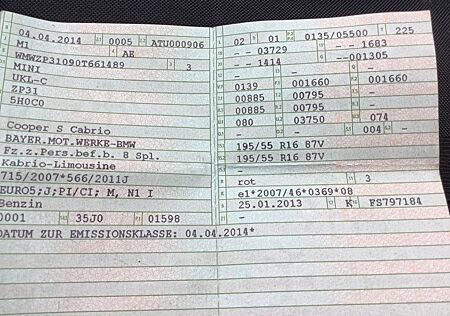 04.04.2014 0005 ATU000906
M1 AE
WMWZP31090T661489 3
MINI
UKL-C
ZP31
5H0C0
Cooper S Cabrio
BAYER.MOT.WERKE-BMW
Fz.z.Pers.bef.b. 8 Spl.
Kabrio-Limousine
715/2007*566/2011J
EURO5;J;PI/CI; M, N1 I
Benzin
0001 35J0 01598
DATUM ZUR EMISSIONSKLASSE: 04.04.2014*
02 01 0135/05500 225
- - 03729 - - 1683
- - 1414 - --001305
- - - -
0139 001660 001660
00885 00795 - -
00885 00795 - -
080 03750 074
- - 004 -
195/55 R16 87V
195/55 R16 87V
-
rot 3
e1*2007/46*0369*08
25.01.2013 K FS797184